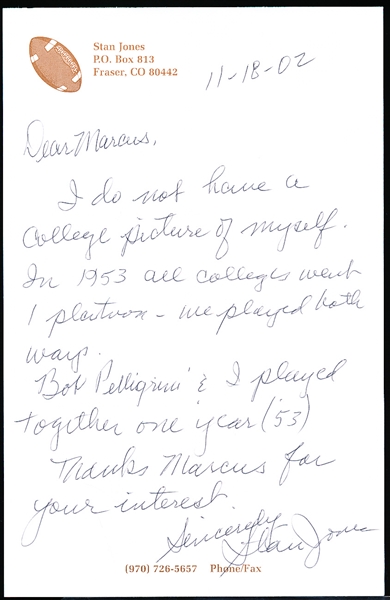 Stan Jones
P.O. Box 813
Fraser, CO 80442
11-18-02
Dear Marcus,
I do not have a
college picture of myself.
In 1953 all colleges went
1 platoon - we played both
ways.
Bob Pelligrini & I played
together one year ('53)
Thanks Marcus for
your interest.
Sincerely
Stan Jones
(970) 726-5657 Phone/Fax